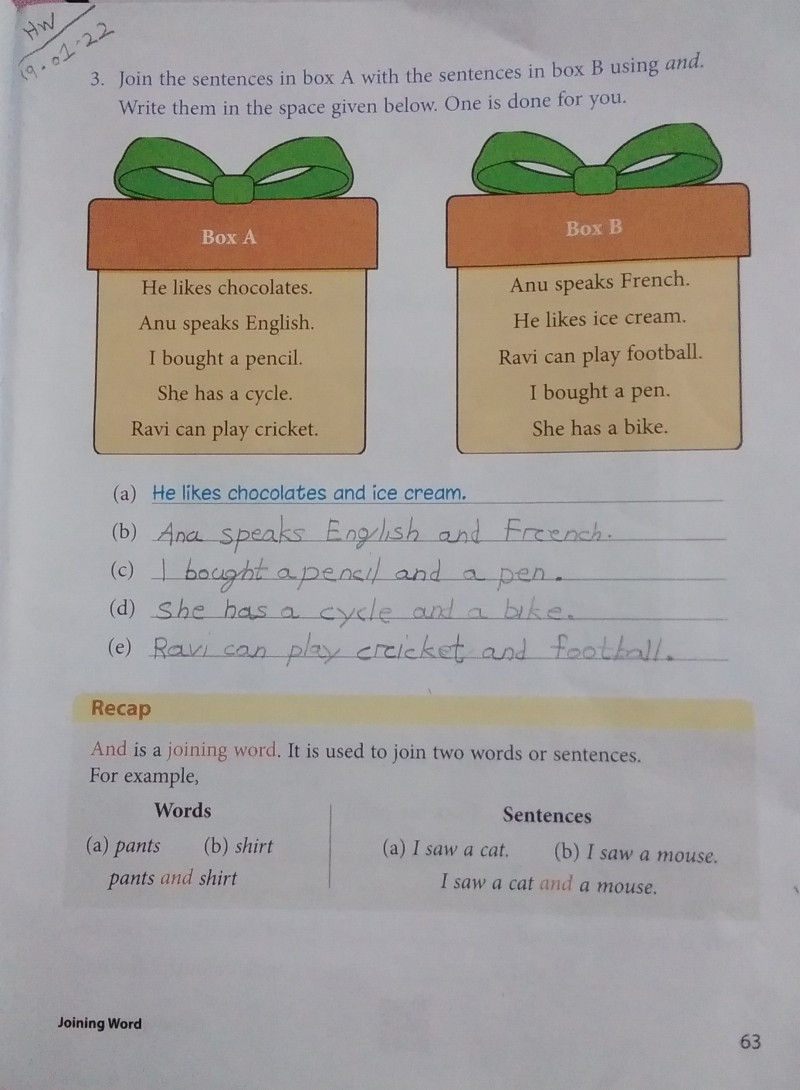 HW
19.01.22
3. Join the sentences in box A with the sentences in box B using and.
Write them in the space given below. One is done for you.
Box A
He likes chocolates.
Anu speaks English.
I bought a pencil.
She has a cycle.
Ravi can play cricket.
Box B
Anu speaks French.
He likes ice cream.
Ravi can play football.
I bought a pen.
She has a bike.
(a) He likes chocolates and ice cream.
(b) Ana speaks English and Freench.
(c) I bought a pencil and a pen.
(d) She has a cycle and a bike.
(e) Ravi can play creicket and football.
Recap
And is a joining word. It is used to join two words or sentences.
For example,
Words
(a) pants (b) shirt
pants and shirt
Sentences
(a) I saw a cat. (b) I saw a mouse.
I saw a cat and a mouse.
Joining Word
63